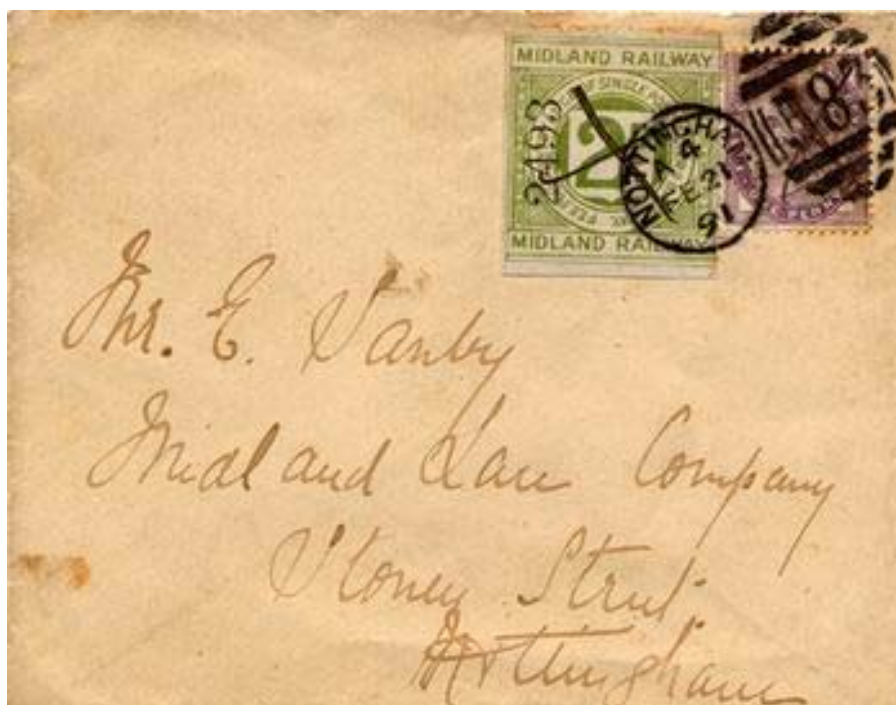 MIDLAND RAILWAY
OF SINGLE
2498
2
MIDLAND RAILWAY
NOTTINGHAM
A 4
FE 21
91
Mr. E. Sanby
Midland Lace Company
Stoney Street
Nottingham